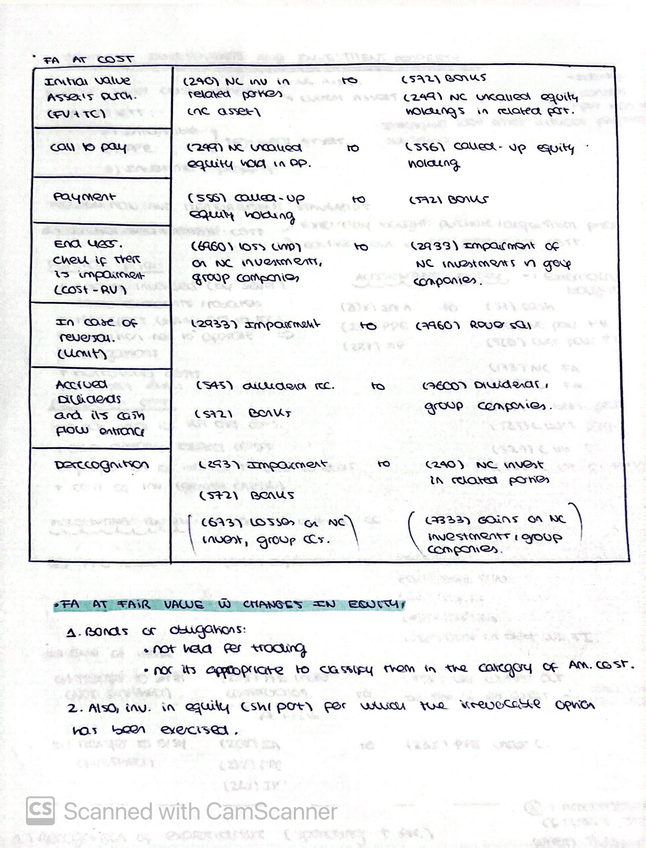 · FA AT COST
Initial value (240) NC inv in to (572) Banks
Assets purch. related parties (249) NC uncalled equity
(FV+TC) (NC asset) holdings in related part.
Call to pay (249) NC uncalled to (556) called-up equity
equity hold in pp. holding
Payment (556) called-up to (572) Banks
equity holding
End year. (6960) loss (imp) to (2933) Impairment of
check if there on NC investments, NC investments in group
is impairment group companies companies.
(COST-RV)
In case of (2933) Impairment to (7960) Reversal
reversal.
(Limit)
Accrued (545) dividend rec. to (7600) Dividends,
Dividends (572) Banks group companies.
and its cash
flow entrance
Derecognition (293) Impairment to (240) NC invest
(572) Banks in related parties
(673) Losses on NC (7333) Gains on NC
invest, group CCs. investments, group
companies.
· FA AT FAIR VALUE W̄ CHANGES IN EQUITY
1. Bonds or obligations:
· not held for trading
· nor its appropriate to classify them in the category of Am. cost.
2. Also, inv. in equity (sh/pot) for which the irrevocable option
has been exercised.
CS Scanned with CamScanner